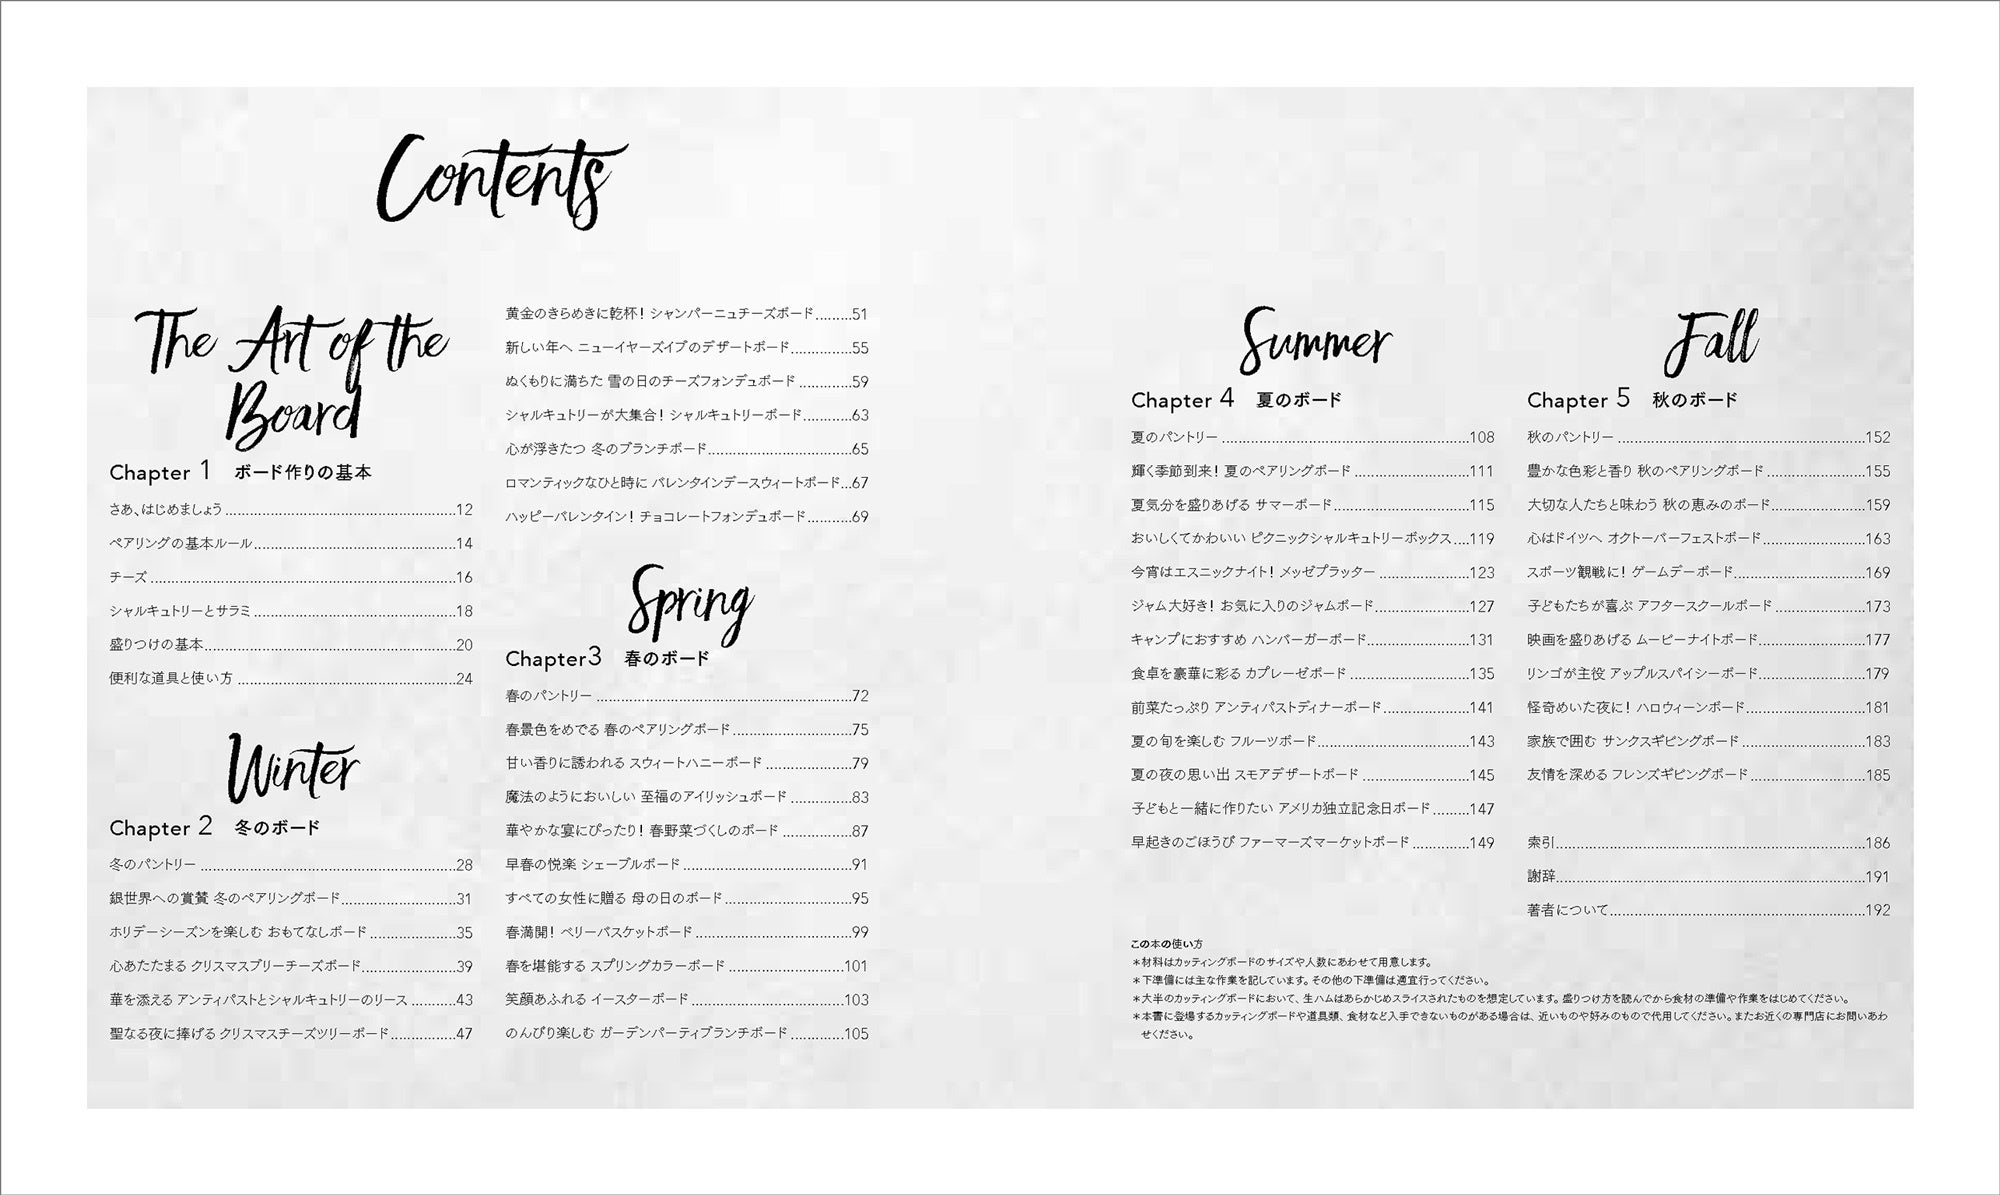 Contents
The Art of the
Board
Chapter 1 ボード作りの基本
さあ、はじめましょう........12
ペアリングの基本ルール........14
チーズ........16
シャルキュトリーとサラミ........18
盛りつけの基本........20
便利な道具と使い方........24
Winter
Chapter 2 冬のボード
冬のパントリー........28
銀世界への賞賛 冬のペアリングボード........31
ホリデーシーズンを楽しむ おもてなしボード........35
心あたたまる クリスマスブリーチーズボード........39
華を添える アンティパストとシャルキュトリーのリース........43
聖なる夜に捧げる クリスマスチーズツリーボード........47
黄金のきらめきに乾杯! シャンパーニュチーズボード........51
新しい年へ ニューイヤーズイブのデザートボード........55
ぬくもりに満ちた 雪の日のチーズフォンデュボード........59
シャルキュトリーが大集合! シャルキュトリーボード........63
心が浮きたつ 冬のブランチボード........65
ロマンティックなひと時に バレンタインデースウィートボード...67
ハッピーバレンタイン! チョコレートフォンデュボード........69
Spring
Chapter3 春のボード
春のパントリー........72
春景色をめでる 春のペアリングボード........75
甘い香りに誘われる スウィートハニーボード........79
魔法のようにおいしい 至福のアイリッシュボード........83
華やかな宴にぴったり! 春野菜づくしのボード........87
早春の悦楽 シェーブルボード........91
すべての女性に贈る 母の日のボード........95
春満開! ベリーバスケットボード........99
春を堪能する スプリングカラーボード........101
笑顔あふれる イースターボード........103
のんびり楽しむ ガーデンパーティブランチボード........105
Summer
Chapter 4 夏のボード
夏のパントリー........108
輝く季節到来! 夏のペアリングボード........111
夏気分を盛りあげる サマーボード........115
おいしくてかわいい ピクニックシャルキュトリーボックス....119
今宵はエスニックナイト! メッゼプラッター........123
ジャム大好き! お気に入りのジャムボード........127
キャンプにおすすめ ハンバーガーボード........131
食卓を豪華に彩る カプレーゼボード........135
前菜たっぷり アンティパストディナーボード........141
夏の旬を楽しむ フルーツボード........143
夏の夜の思い出 スモアデザートボード........145
子どもと一緒に作りたい アメリカ独立記念日ボード........147
早起きのごほうび ファーマーズマーケットボード........149
Fall
Chapter 5 秋のボード
秋のパントリー........152
豊かな色彩と香り 秋のペアリングボード........155
大切な人たちと味わう 秋の恵みのボード........159
心はドイツへ オクトーバーフェストボード........163
スポーツ観戦に! ゲームデーボード........169
子どもたちが喜ぶ アフタースクールボード........173
映画を盛りあげる ムービーナイトボード........177
リンゴが主役 アップルスパイシーボード........179
怪奇めいた夜に! ハロウィーンボード........181
家族で囲む サンクスギビングボード........183
友情を深める フレンズギビングボード........185
索引........186
謝辞........191
著者について........192
この本の使い方
＊材料はカッティングボードのサイズや人数にあわせて用意します。
＊下準備には主な作業を記しています。その他の下準備は適宜行ってください。
＊大半のカッティングボードにおいて、生ハムはあらかじめスライスされたものを想定しています。盛りつけ方を読んでから食材の準備や作業をはじめてください。
＊本書に登場するカッティングボードや道具類、食材など入手できないものがある場合は、近いものや好みのもので代用してください。またお近くの専門店にお問いあわ
せください。